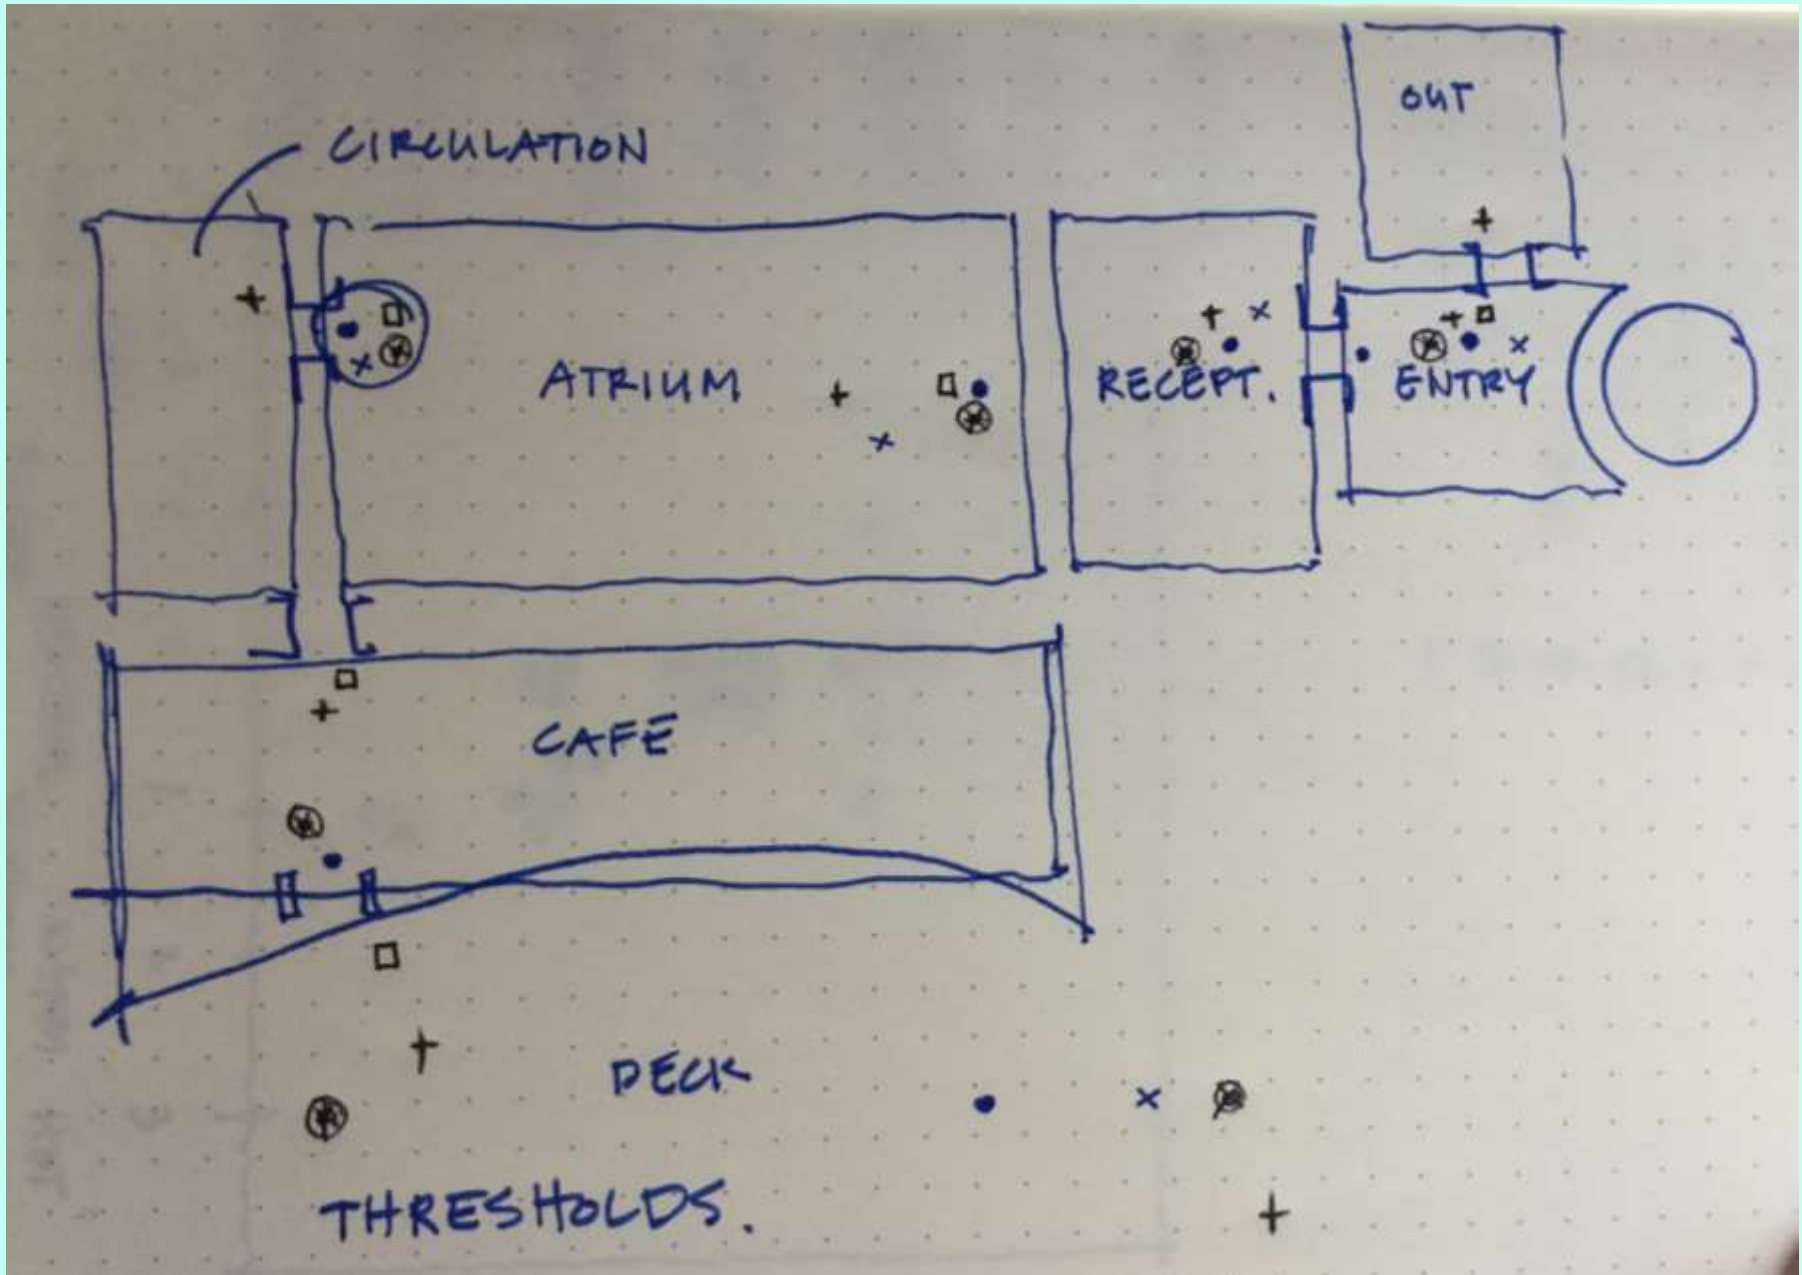 OUT
CIRCULATION
ATRIUM
RECEPT.
ENTRY
CAFE
DECK
THRESHOLDS.